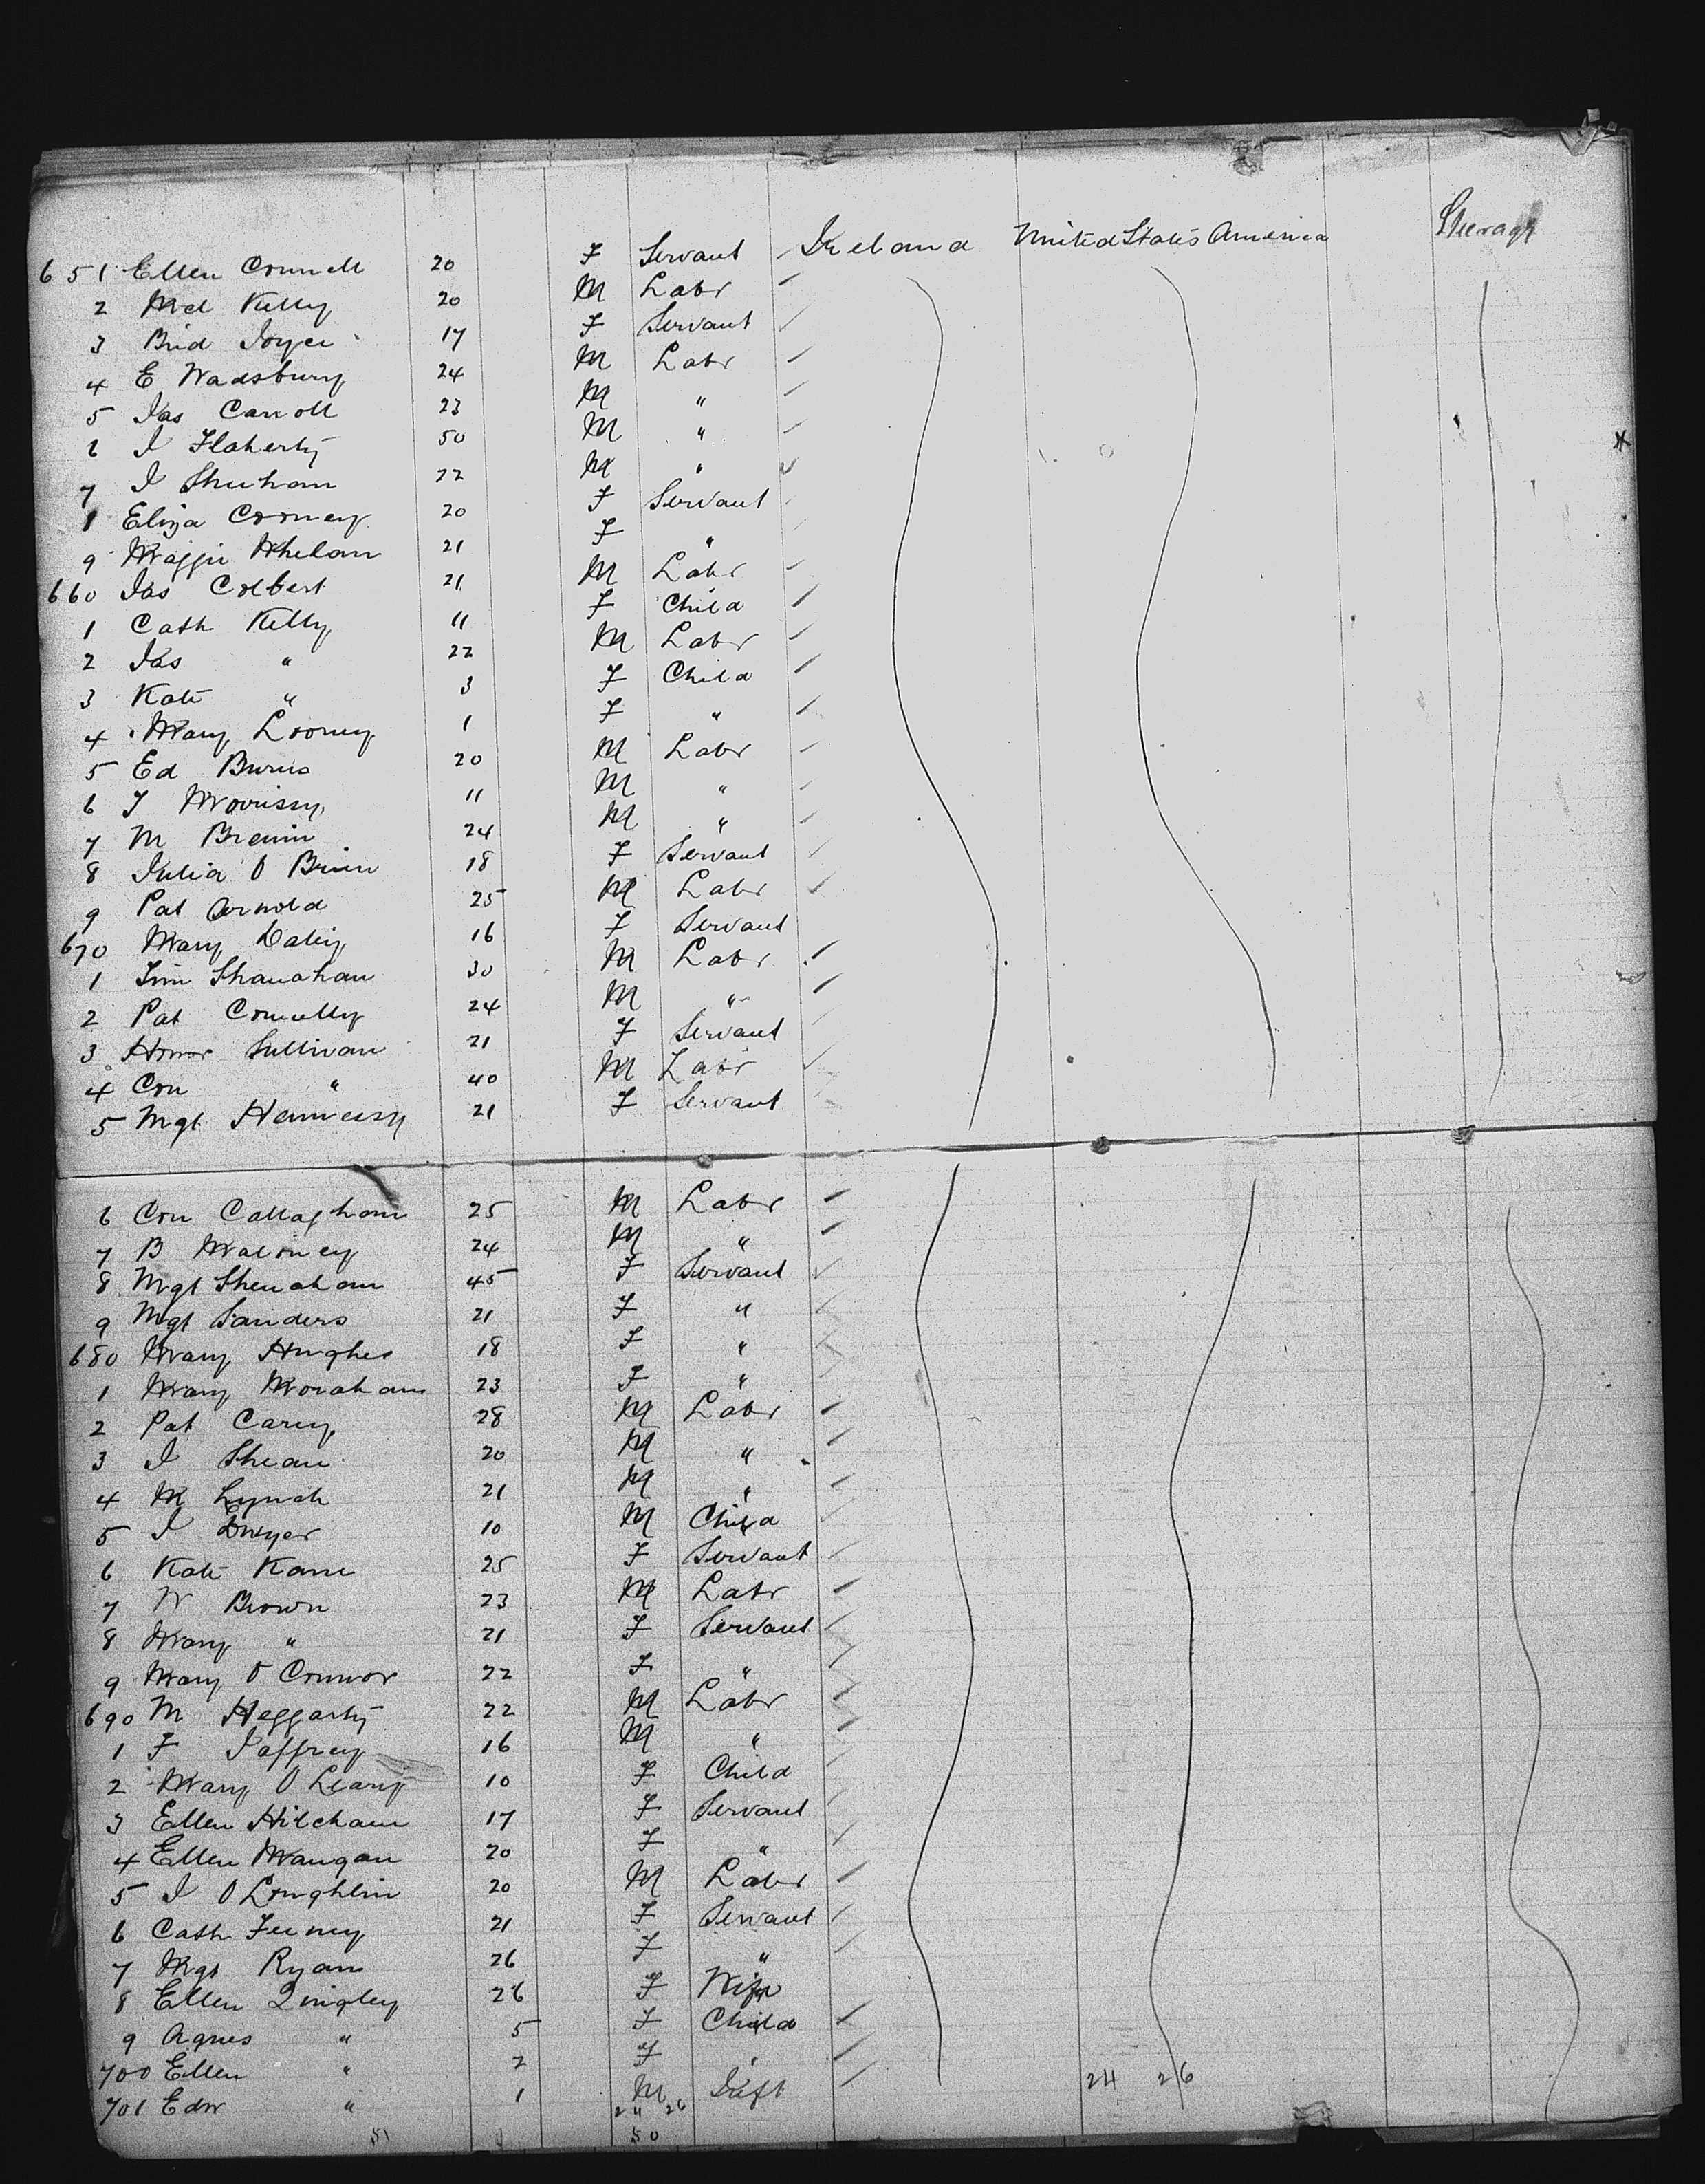 651 Ellen Connell 20 F Servant Ireland United States America Steerage
2 Mcl Kelly 20 M Labr
3 Brid Joyce 17 F Servant
4 E Wadsbury 24 M Labr
5 Jas Carroll 23 M "
6 J Flaherty 50 M "
7 J Sheehan 22 M "
8 Eliza Cooney 20 F Servant
9 Maggie Whelan 21 F "
660 Jas Colbert 21 M Labr
1 Cath Kelly 11 F Child
2 Jas " 22 M Labr
3 Kate " 3 F Child
4 Mary Looney 1 F "
5 Ed Burns 20 M Labr
6 J Morrissy 11 M "
7 M Brennin 24 M "
8 Julia O Brien 18 F Servant
9 Pat Arnold 25 M Labr
670 Mary Daley 16 F Servant
1 Jim Shanahan 30 M Labr
2 Pat Connelly 24 M "
3 Honor Sullivan 21 F Servant
4 Con " 40 M Labr
5 Mgt Hennessy 21 F Servant
6 Con Callaghan 25 M Labr
7 B Maloney 24 M "
8 Mgt Shenahan 45 F Servant
9 Mgt Sanders 21 F "
680 Mary Hughes 18 F "
1 Mary Morahan 23 F "
2 Pat Carey 28 M Labr
3 J Shean 20 M "
4 M Lynch 21 M "
5 J Dwyer 10 M Child
6 Kate Kane 25 F Servant
7 W Brown 23 M Labr
8 Mary " 21 F Servant
9 Mary O Connor 22 F "
690 M Heggarty 22 M Labr
1 F Jaffrey 16 M "
2 Mary O Leary 10 F Child
3 Ellen Hilcham 17 F Servant
4 Ellen Mangan 20 F "
5 J O Loughlin 20 M Labr
6 Cath Feeney 21 F Servant
7 Mgt Ryan 26 F "
8 Ellen Qingley 26 F Wife
9 Agnes " 5 F Child
700 Ellen " 2 F " 24 26
701 Edw " 1 M Inft
24 26
51 50